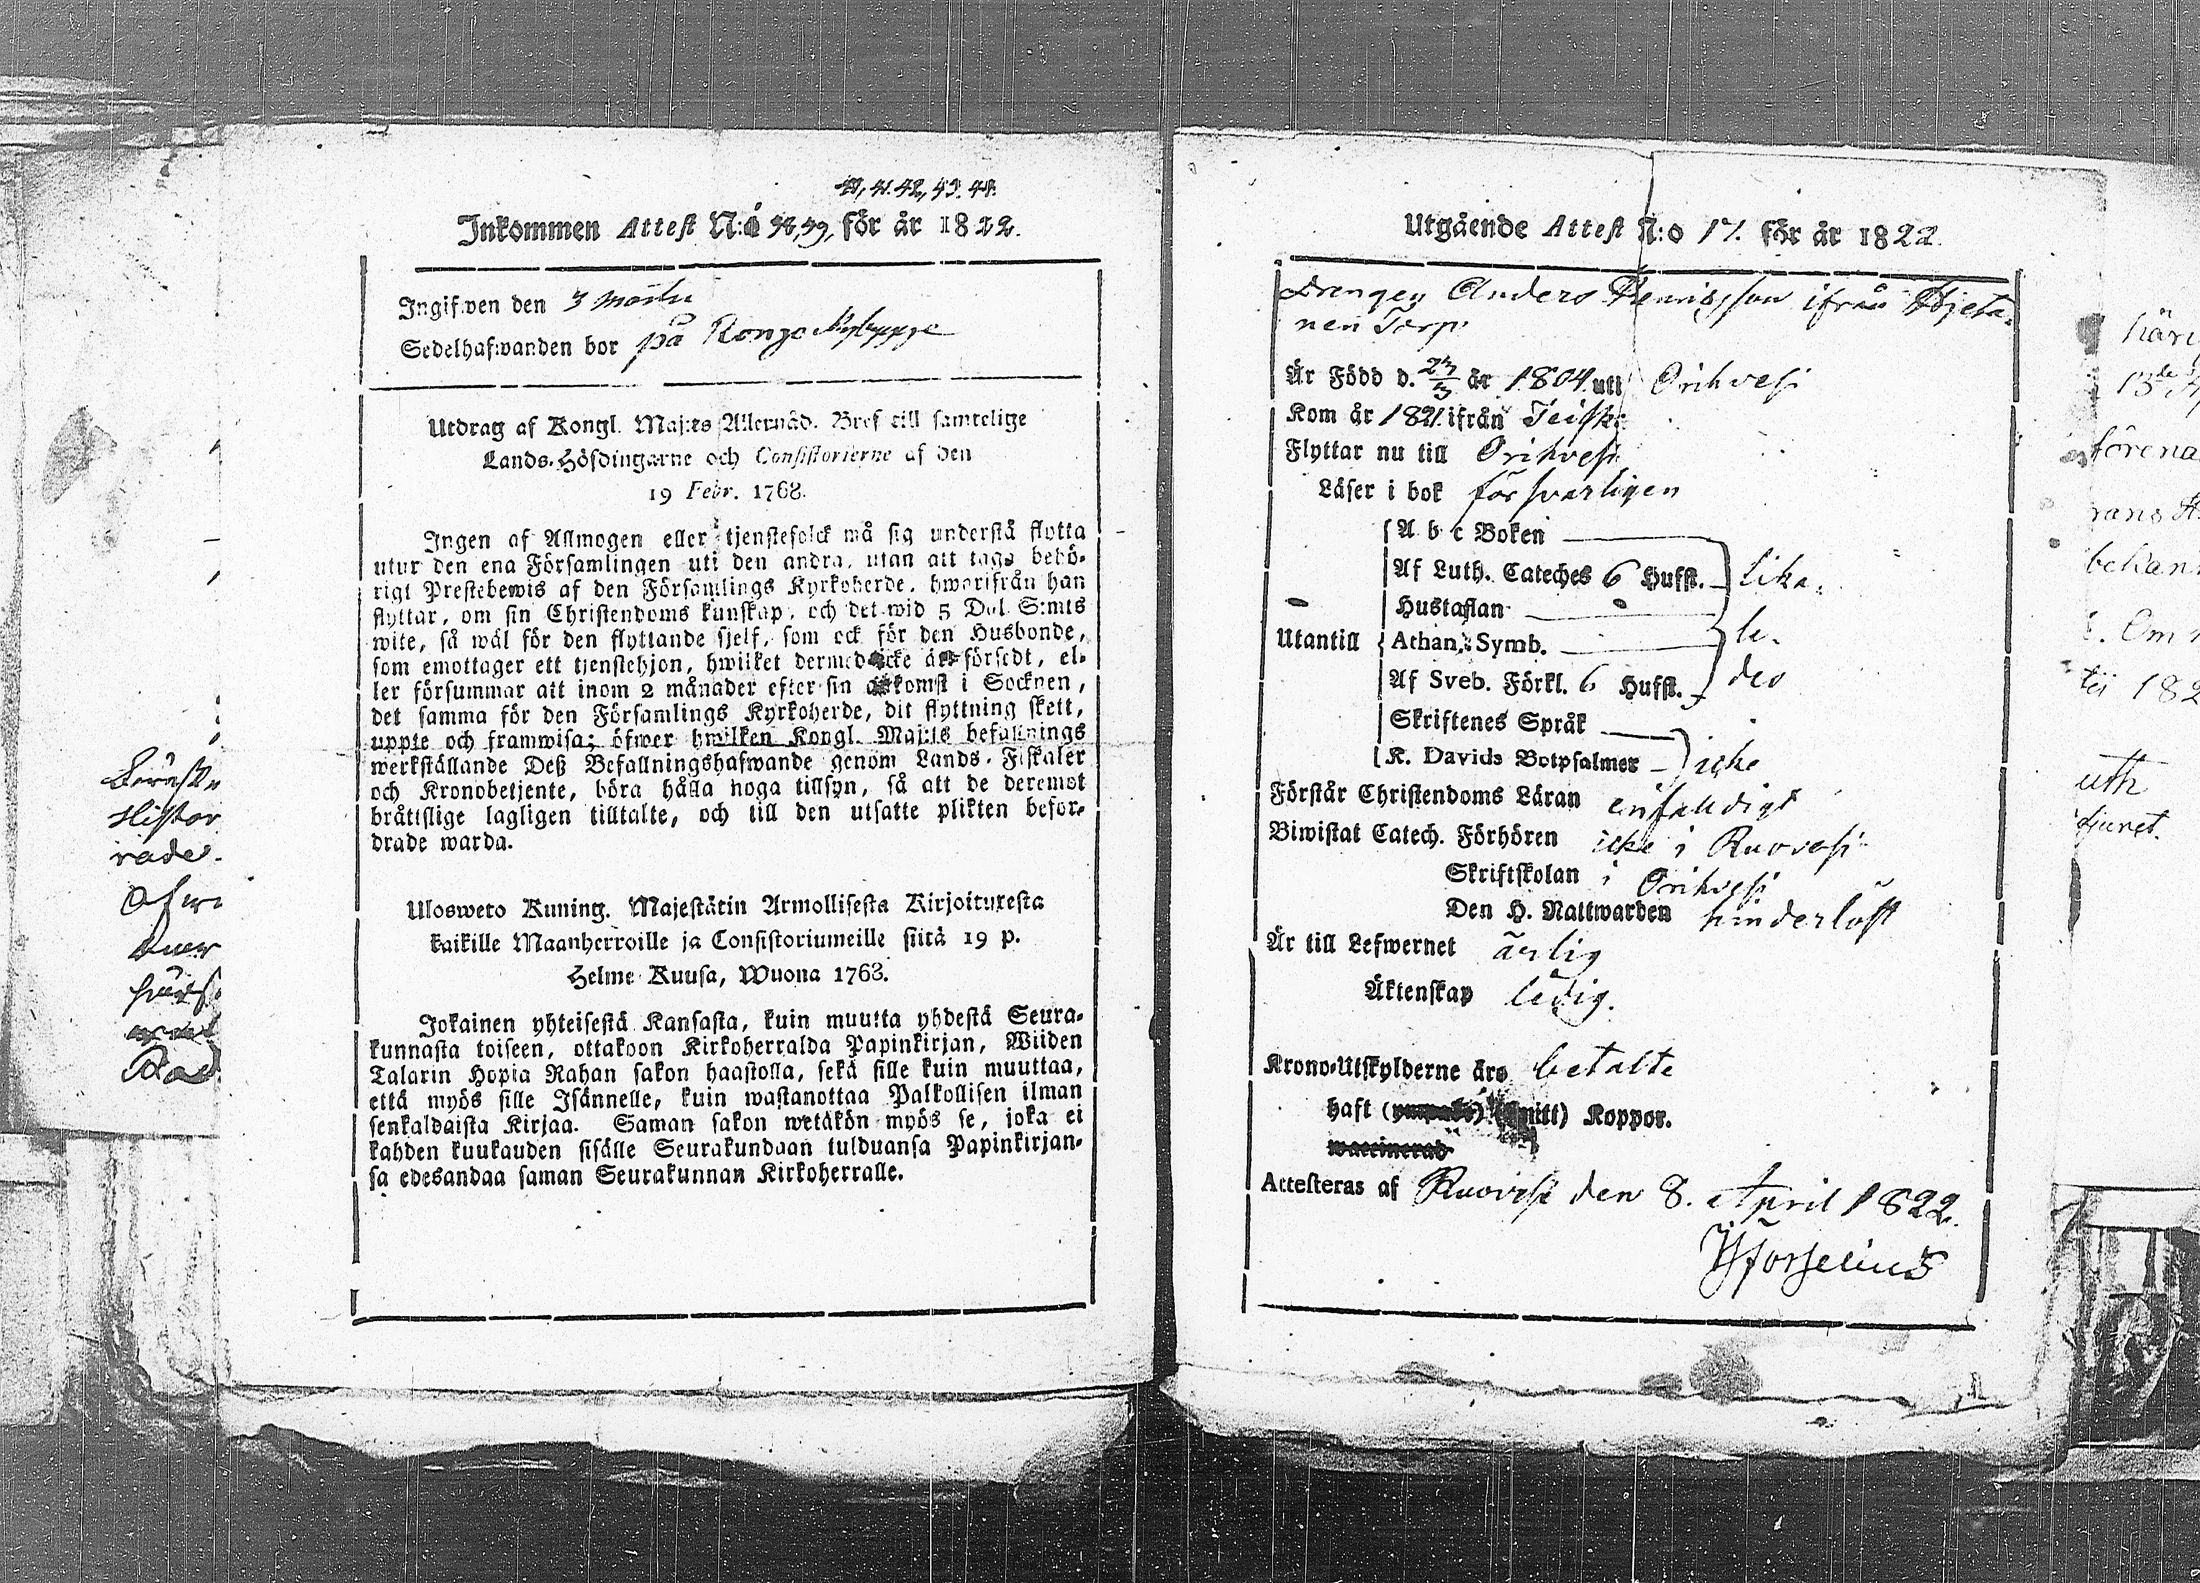 41. 42, 43. 44.
Inkommen Attest N:o 38, 39, för år 1822.
Ingifwen den 3 Martii
Sedelhafwanden bor på
Utdrag af Kongl. Maj:ts Allernåd. Bref till samtelige
Lands-Höfdingarne och Consistorierne af den
19 Febr. 1768.
Ingen af Allmogen eller tjenstefolck må sig understå flytta
utur den ena Församlingen uti den andra, utan att taga behö-
rigt Prestebewis af den Församlings Kyrkoherde, hwarifrån han
flyttar, om sin Christendoms kunskap, och det wid 5 Dal. S:mts
wite, så wäl för den flyttande sjelf, som ock för den Husbonde,
som emottager ett tjenstehjon, hwilket dermed icke är försedt, el-
ler försummar att inom 2 månader efter sin ankomst i Socknen,
det samma för den Församlings Kyrkoherde, dit flyttning skett,
uppte och framwisa; öfwer hwilken Kongl. Maj:ts befallnings
werkställande Deß Befallningshafwande genom Lands-Fiskaler
och Kronobetjente, böra hålla noga tillsyn, så att de deremot
bråttslige lagligen tilltalte, och till den utsatte plikten befor-
drade warda.
Ulosweto Kuning. Majestätin Armollisesta Kirjoituxesta
kaikille Maanherroille ja Consistoriumeille siitä 19 p.
Helme Kuusa, Wuona 1768.
Jokainen yhteisestä Kansasta, kuin muutta yhdestä Seura-
kunnasta toiseen, ottakoon Kirkoherralda Papinkirjan, Wiiden
Talarin Hopia Rahan sakon haastolla, sekä sille kuin muuttaa,
että myös sille Isännelle, kuin wastanottaa Palkollisen ilman
senkaldaista Kirjaa. Saman sakon wetäkön myös se, joka ei
kahden kuukauden sisälle Seurakundaan tulduansa Papinkirjan-
sa edesandaa saman Seurakunnan Kirkoherralle.
Utgående Attest N:o 17. för år 1822.
Drengen Anders Henriksson ifrån
nen Torp
Är Född d. 24/3 år 1804 uti Orihvesi
Kom år 1821 ifrån Teisko
Flyttar nu till Orihvesi
Läser i bok försvarligen
A b c Boken
Af Luth. Cateches 6 Hufst. lika
Hustaflan
Utantill Athan. Symb. le-
Af Sveb. Förkl. 6 Hufst. des
Skriftenes Språk
K. Davids Botpsalmer icke
Förstår Christendoms Läran enfaldigt
Biwistat Catech. Förhören icke i Ruovesi
Skriftskolan i Orihvesi
Den H. Nattwarden hinderlöst
Är till Lefwernet ärlig
Äktenskap ledig.
Krono-Utskylderne äro betalte
haft Koppor.
waccinerad
Attesteras af Ruovesi den 8. April 1822.
Forselius
Histor
rade.
förena
13de
182